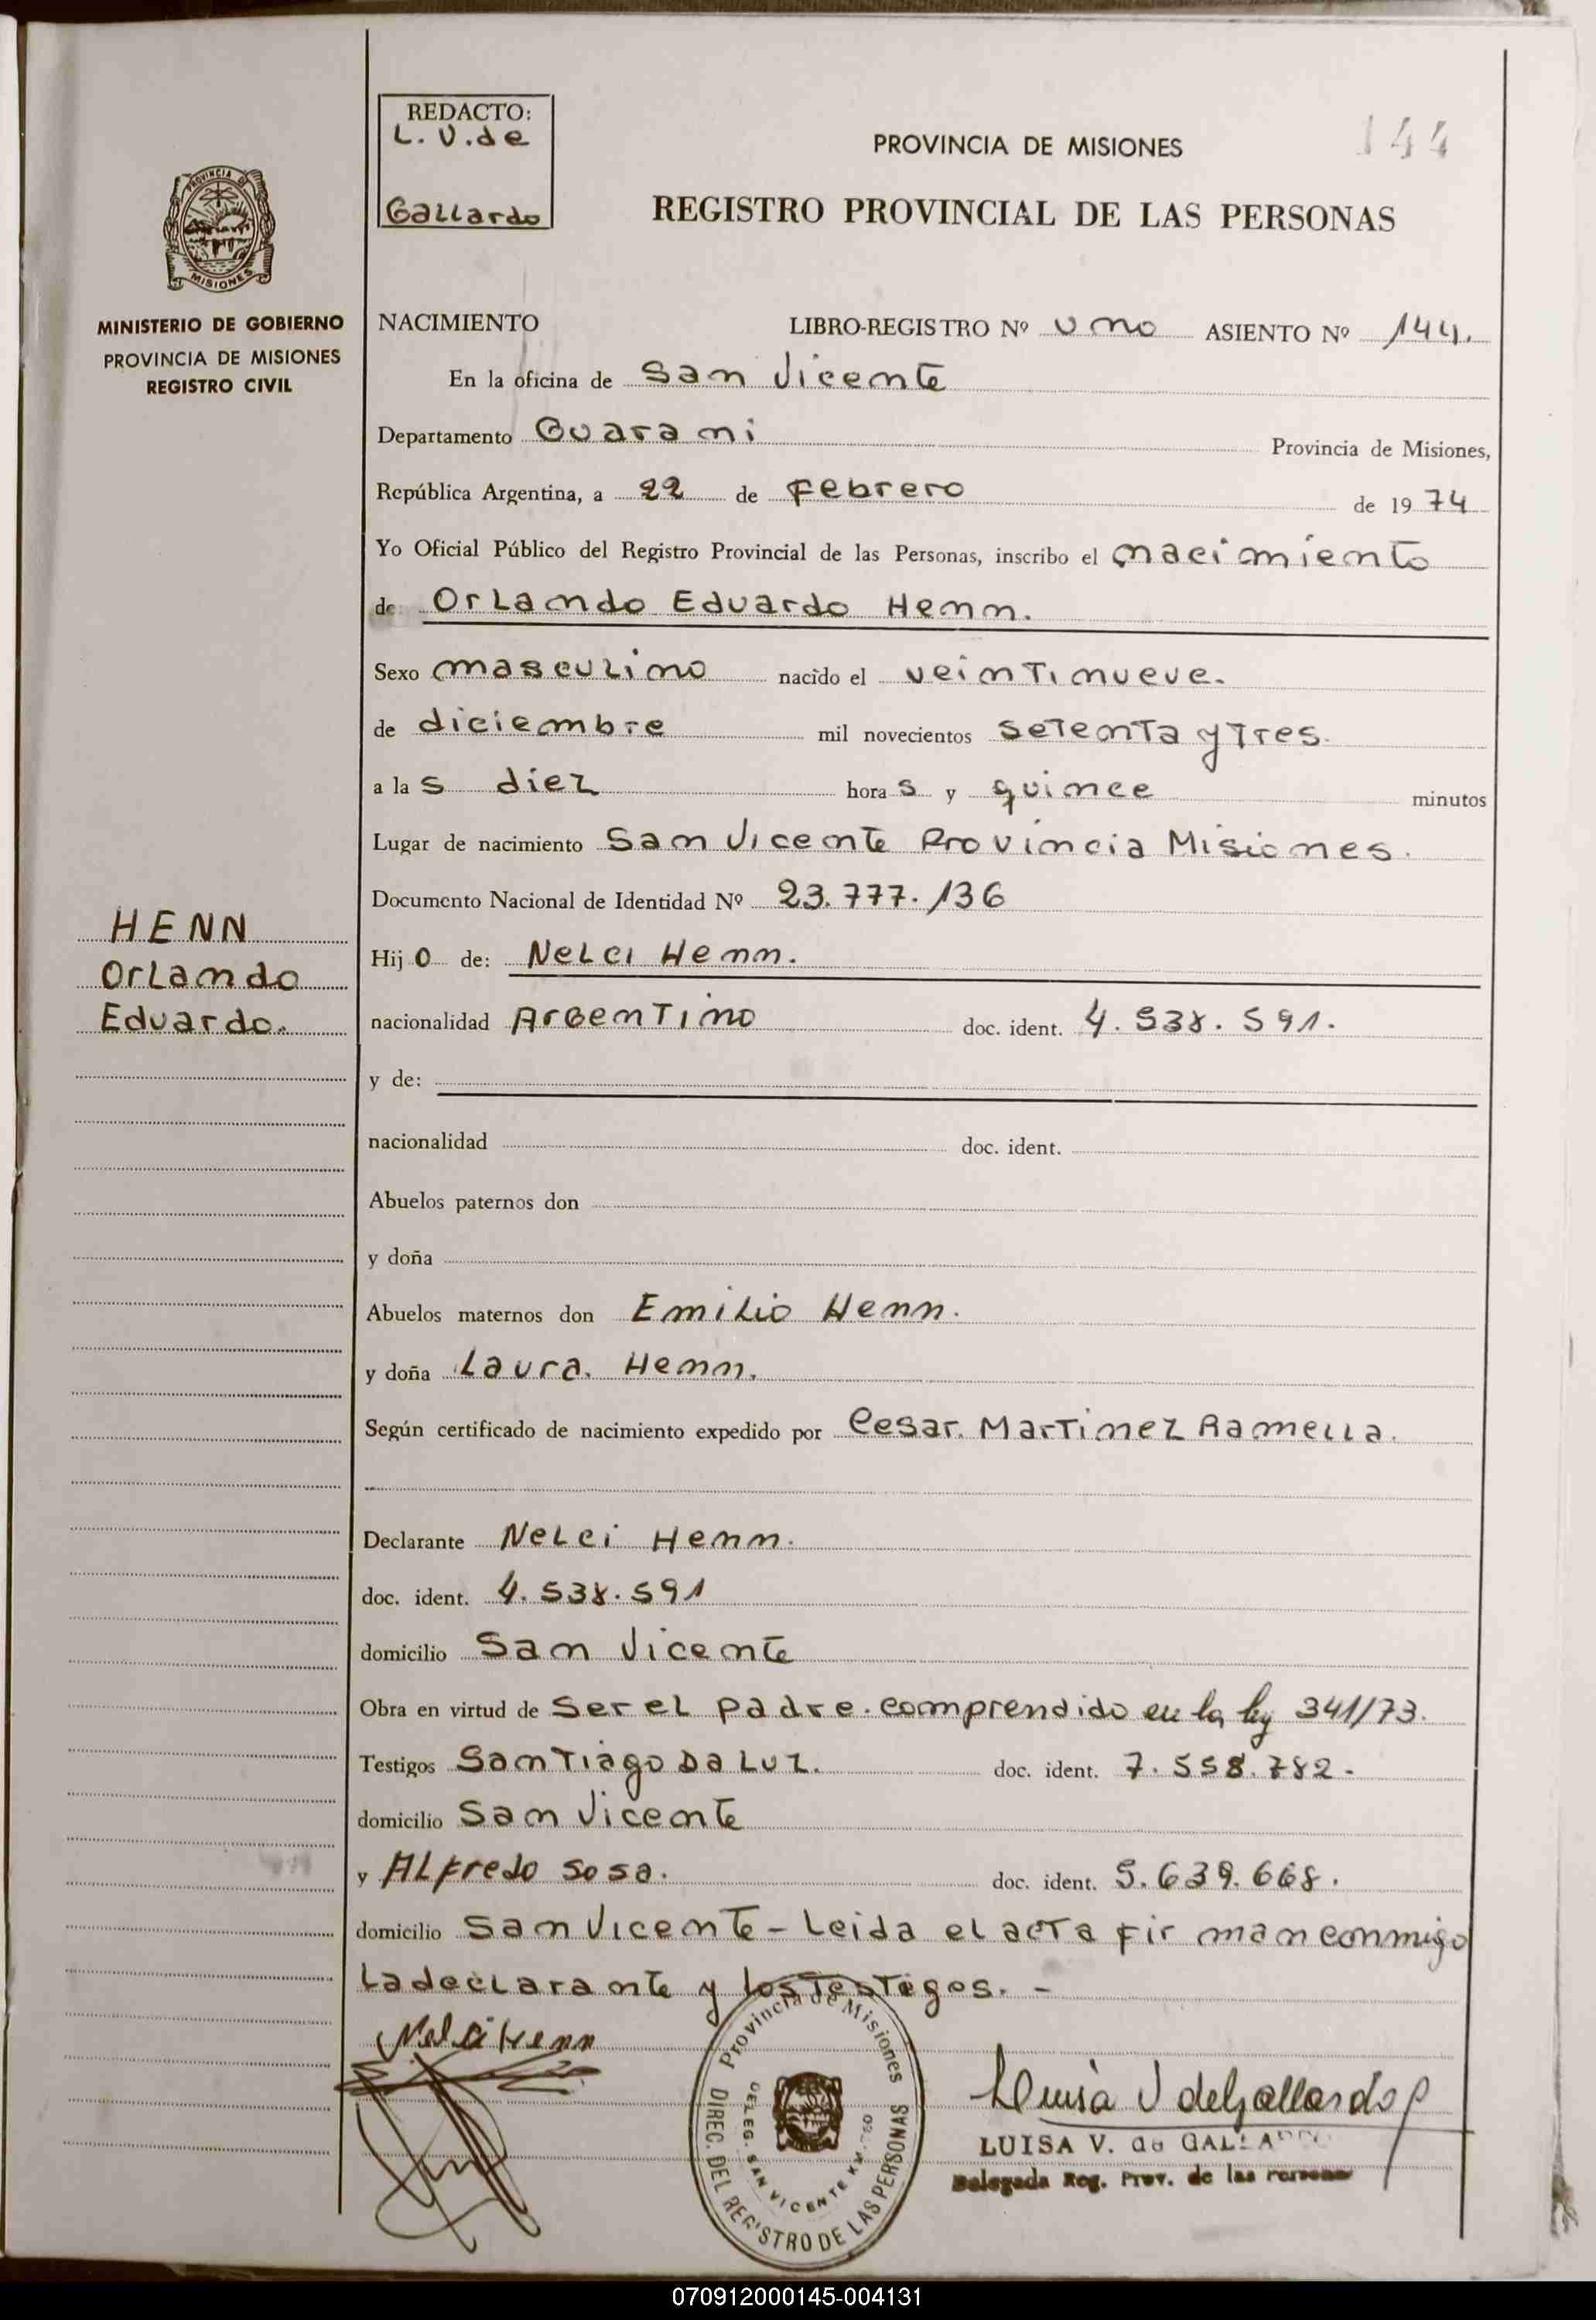 REDACTO:
L. V. de
Gallardo
PROVINCIA DE MISIONES
144
REGISTRO PROVINCIAL DE LAS PERSONAS
PROVINCIA DE
MISIONES
MINISTERIO DE GOBIERNO
PROVINCIA DE MISIONES
REGISTRO CIVIL
NACIMIENTO LIBRO-REGISTRO Nº uno ASIENTO Nº 144.
En la oficina de San Vicente
Departamento Guarani Provincia de Misiones,
República Argentina, a 22 de Febrero de 1974
Yo Oficial Público del Registro Provincial de las Personas, inscribo el nacimiento
de Orlando Eduardo Henn.
Sexo masculino nacido el veintinueve.
de diciembre mil novecientos setenta y Tres.
a las diez horas y quince minutos
Lugar de nacimiento San Vicente Provincia Misiones.
Documento Nacional de Identidad Nº 23.777.136
HENN
Orlando
Eduardo.
Hijo de: Nelci Henn.
nacionalidad Argentino doc. ident. 4.538.591.
y de:
nacionalidad doc. ident.
Abuelos paternos don
y doña
Abuelos maternos don Emilio Henn.
y doña Laura. Henn.
Según certificado de nacimiento expedido por Cesar. Martinez Ramella.
Declarante Nelci Henn.
doc. ident. 4.538.591
domicilio San Vicente
Obra en virtud de ser el padre. comprendido en la ley 341/73.
Testigos Santiago Da Luz. doc. ident. 7.558.782.
domicilio San Vicente
y Alfredo Sosa. doc. ident. 5.639.668.
domicilio San Vicente - Leida el acta firman conmigo
la declarante y los Testigos. -
Nelci Henn
Provincia de Misiones
DIREC. DEL REGISTRO DE LAS PERSONAS
DELEG. SAN VICENTE
Luisa V de Gallardo
LUISA V. de GALLARDO
Delegada Reg. Prov. de las Personas
070912000145-004131